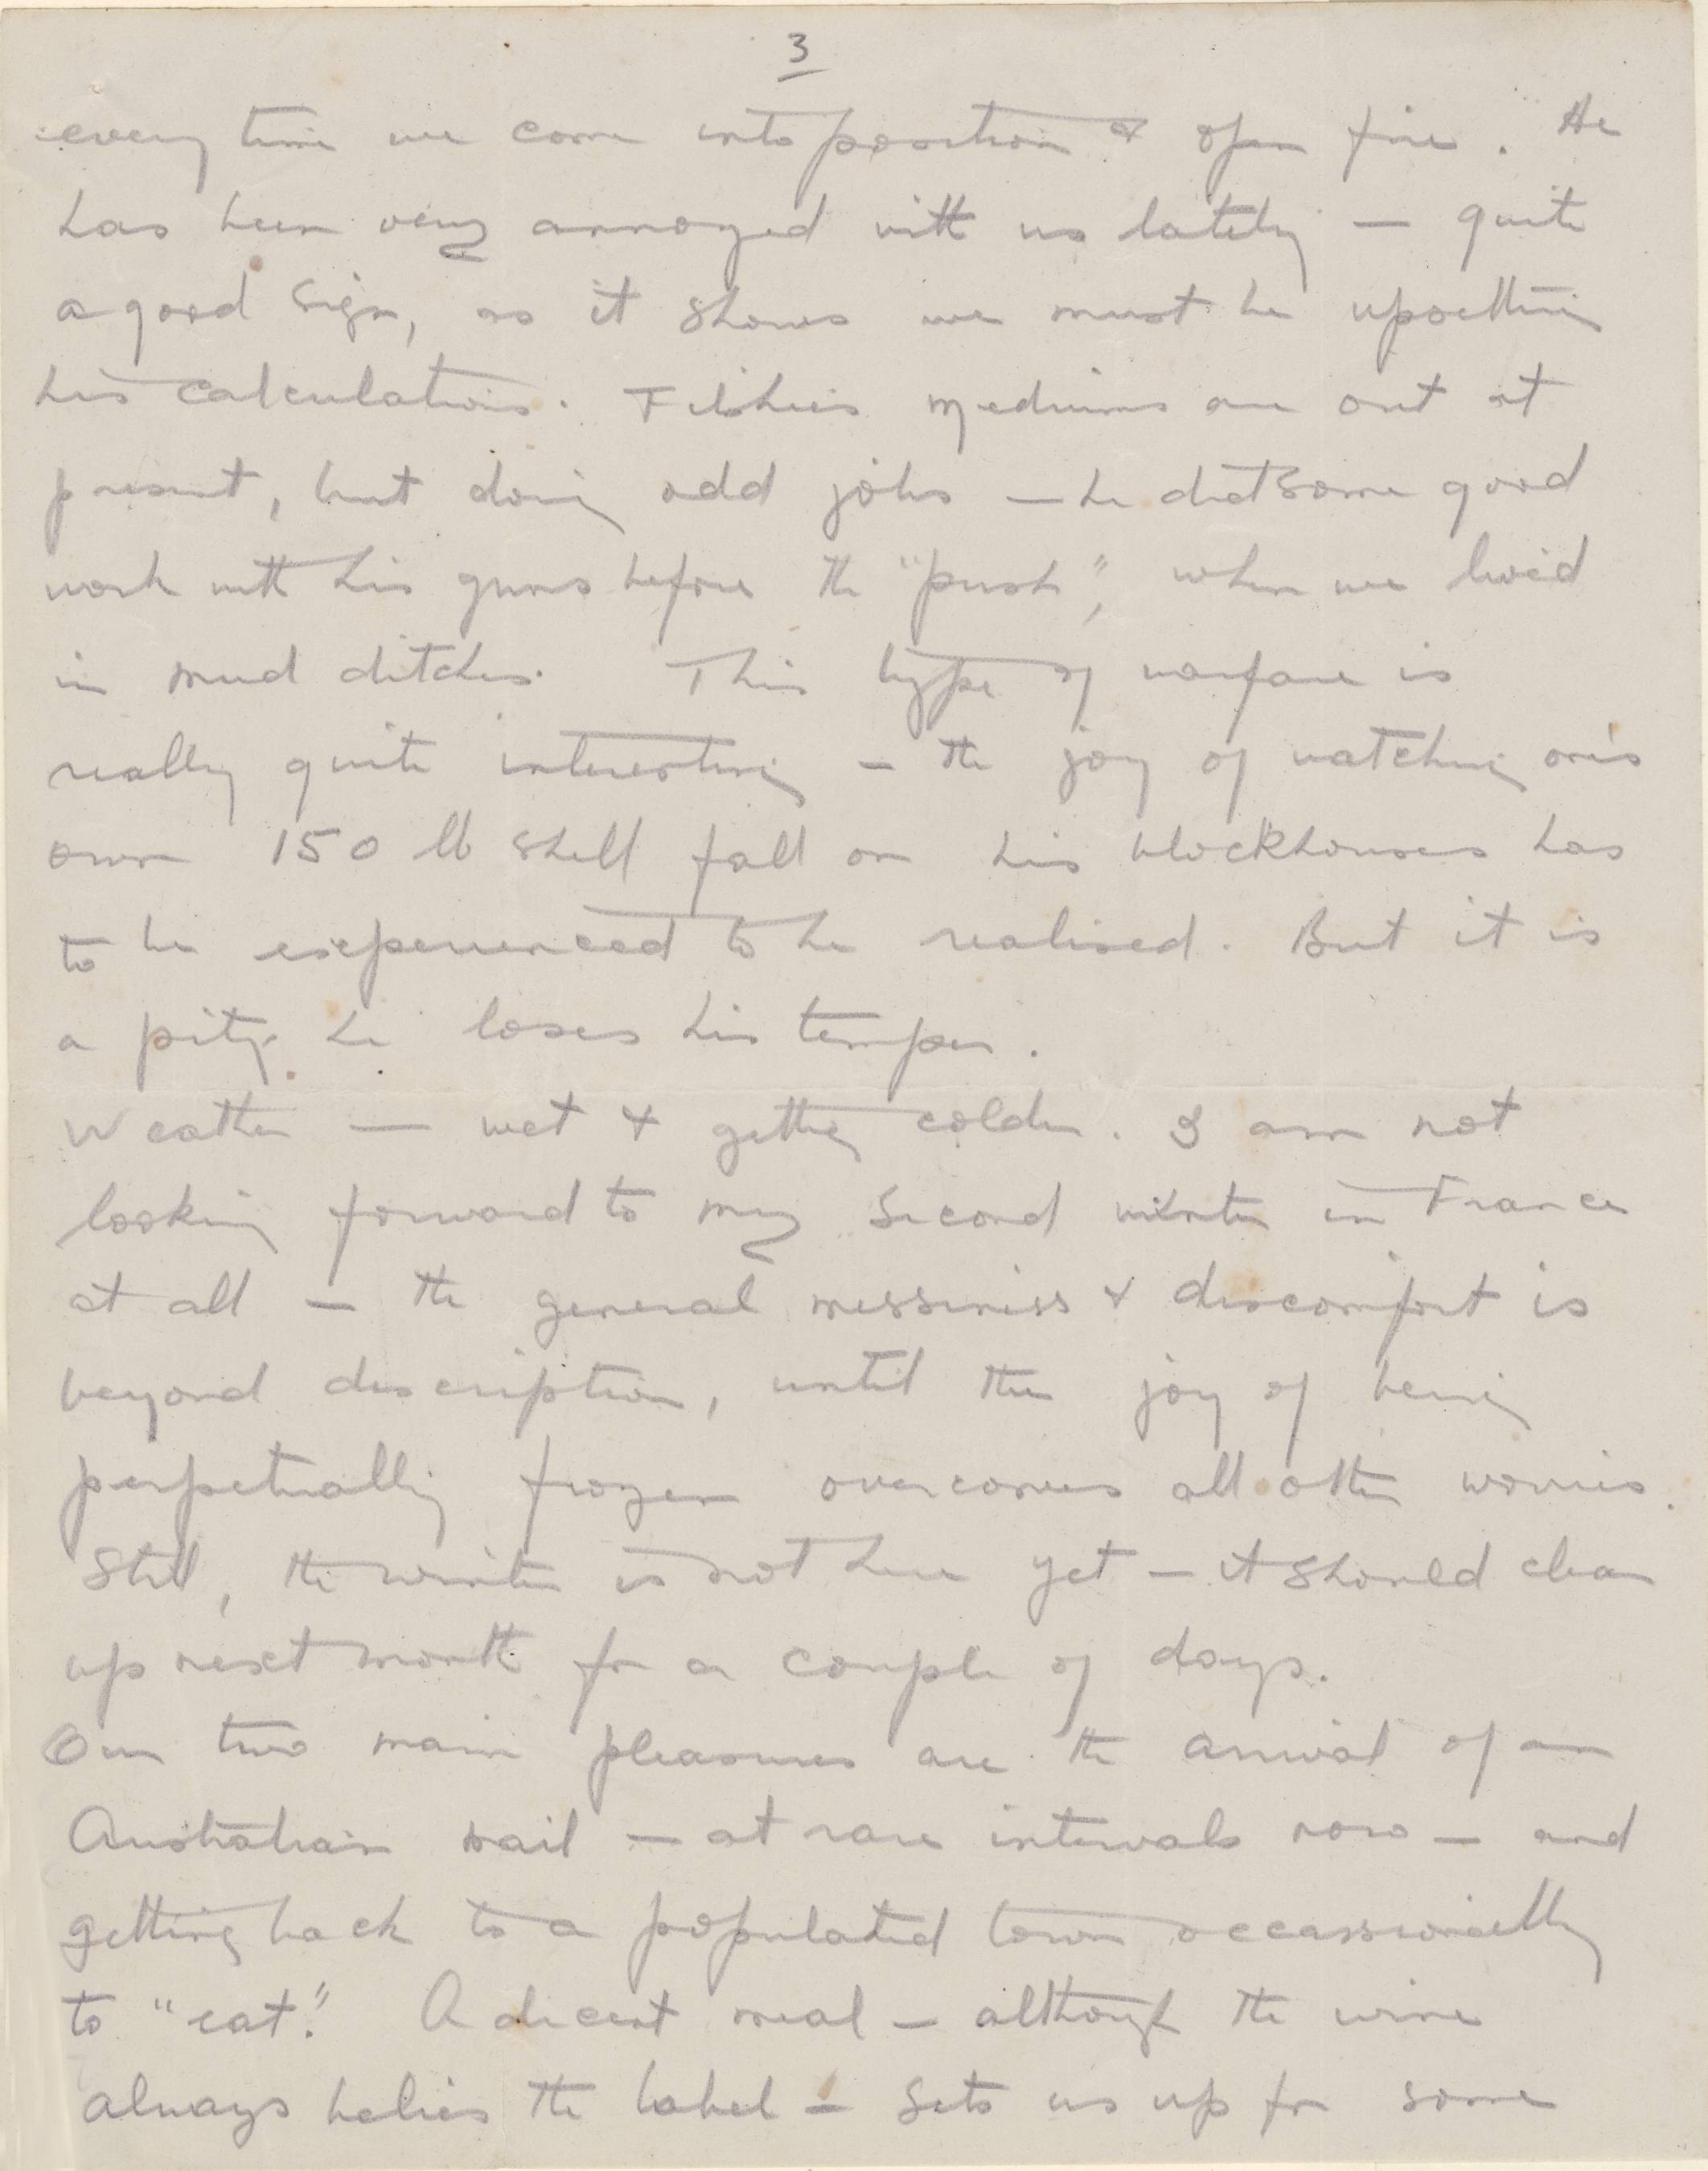 3
every time we come into position & open fire. He
has been very annoyed with us lately — quite
a good sign, as it shows we must be upsetting
his calculations. mediums are out at
present, but doing odd jobs — he did some good
work with his guns before the "push", when we lived
in mud ditches. This type of warfare is
really quite interesting — the joy of watching one's
own 150 lb shell fall on his blockhouses has
to be experienced to be realised. But it is
a pity he loses his temper.
Weather — wet & getting colder. I am not
looking forward to my second winter in France
at all — the general messiness & discomfort is
beyond description, until the joy of being
perpetually frozen overcomes all other worries.
Still, the winter is not here yet — it should clear
up next month for a couple of days.
Our two main pleasures are the arrival of an
Australian mail — at rare intervals now — and
getting back to a populated town occassionally
to "eat". A decent meal — although the wine
always belies the label — sets us up for some